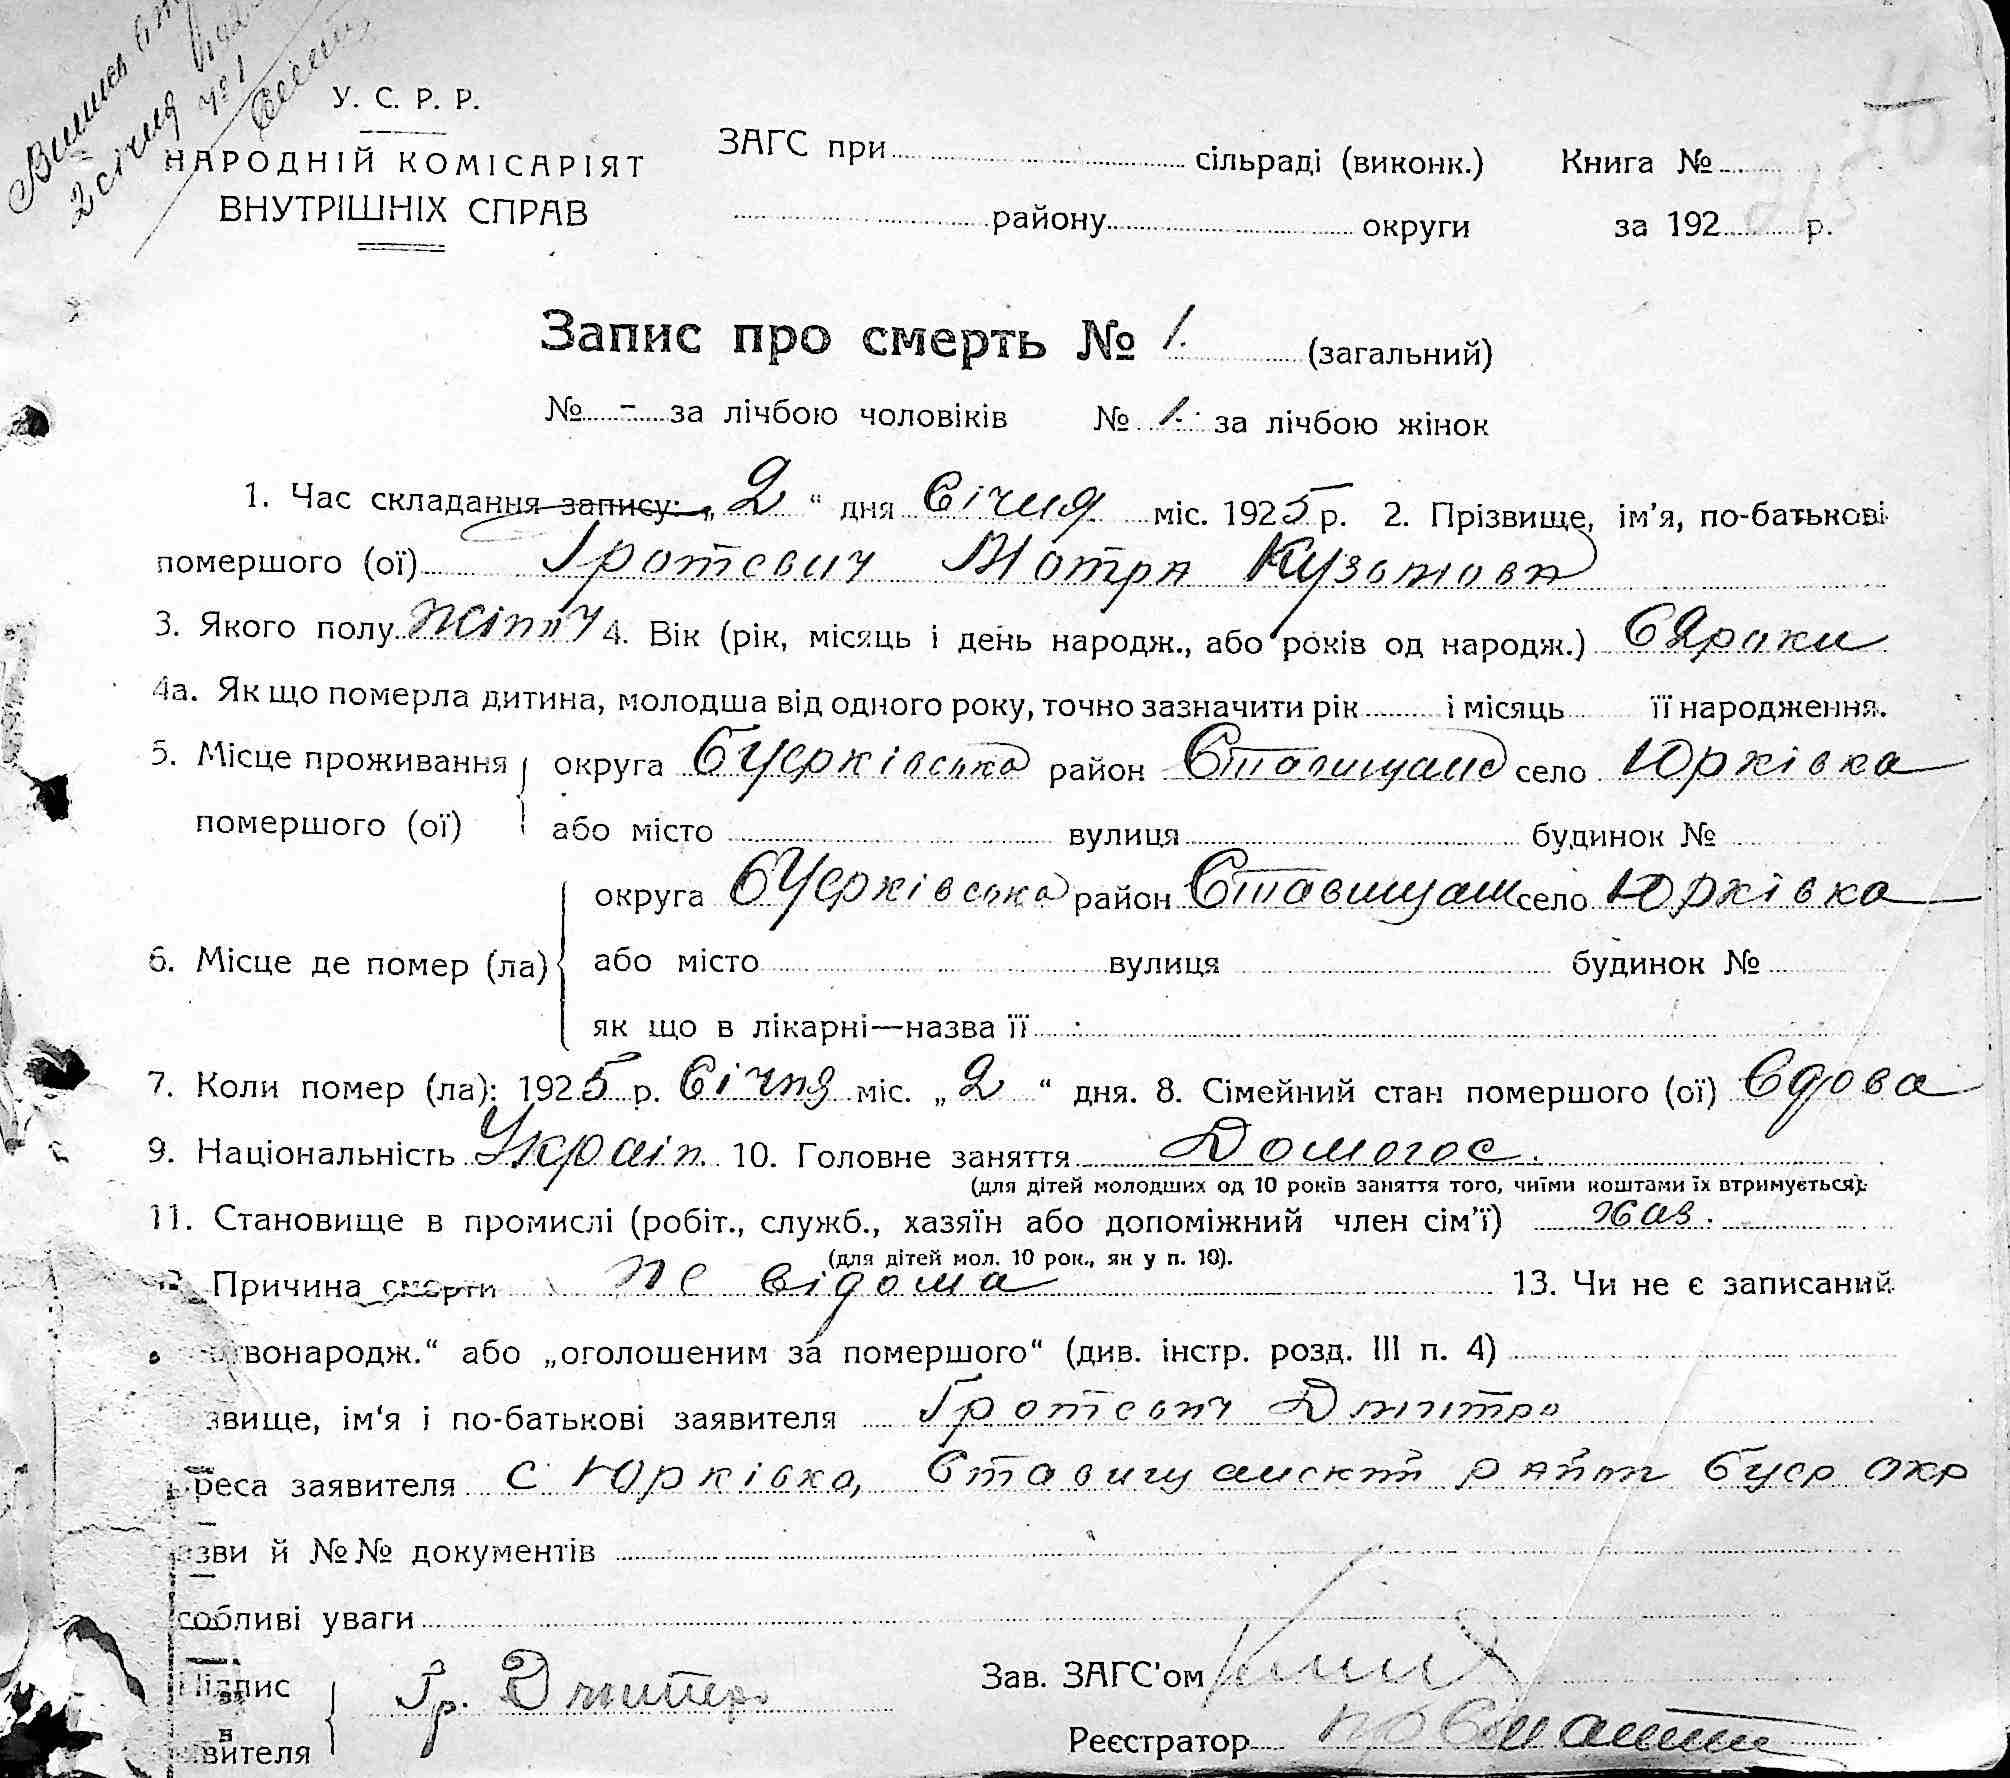 2 січня № 1
У. С. Р. Р.
НАРОДНІЙ КОМІСАРІЯТ
ВНУТРІШНІХ СПРАВ
ЗАГС при сільраді (виконк.) Книга №
району округи за 192 р.
Запис про смерть № 1. (загальний)
№ - за лічбою чоловіків № 1. за лічбою жінок
1. Час складання запису: „2“ дня Січня міс. 1925 р. 2. Прізвище, ім’я, по-батькові
помершого (ої) Гротевич Мотря Кузьмова
3. Якого полу жіноч 4. Вік (рік, місяць і день народж., або років од народж.) 62 роки
4а. Як що померла дитина, молодша від одного року, точно зазначити рік і місяць її народження.
5. Місце проживання округа БЦерківська район Ставищан село Юрківка
помершого (ої) або місто вулиця будинок №
округа БЦерківська район Ставищан село Юрківка
6. Місце де помер (ла) або місто вулиця будинок №
як що в лікарні—назва її
7. Коли помер (ла): 1925 р. Січня міс. „2“ дня. 8. Сімейний стан помершого (ої) Вдова
9. Національність Україн. 10. Головне заняття Домогос.
(для дітей молодших од 10 років заняття того, чиїми коштами їх втримується).
11. Становище в промислі (робіт., служб., хазяїн або допоміжний член сім’ї) хаз.
(для дітей мол. 10 рок., як у п. 10).
Причина смерти не відома 13. Чи не є записаний
вонародж.“ або „оголошеним за помершого“ (див. інстр. розд. III п. 4)
звище, ім’я і по-батькові заявителя Гротевич Дмитро
реса заявителя с Юрківка, Ставищанский район Бцер окр
зви й №№ документів
собливі уваги
Підпис Гр. Дмитро Зав. ЗАГС’ом
явителя Реєстратор